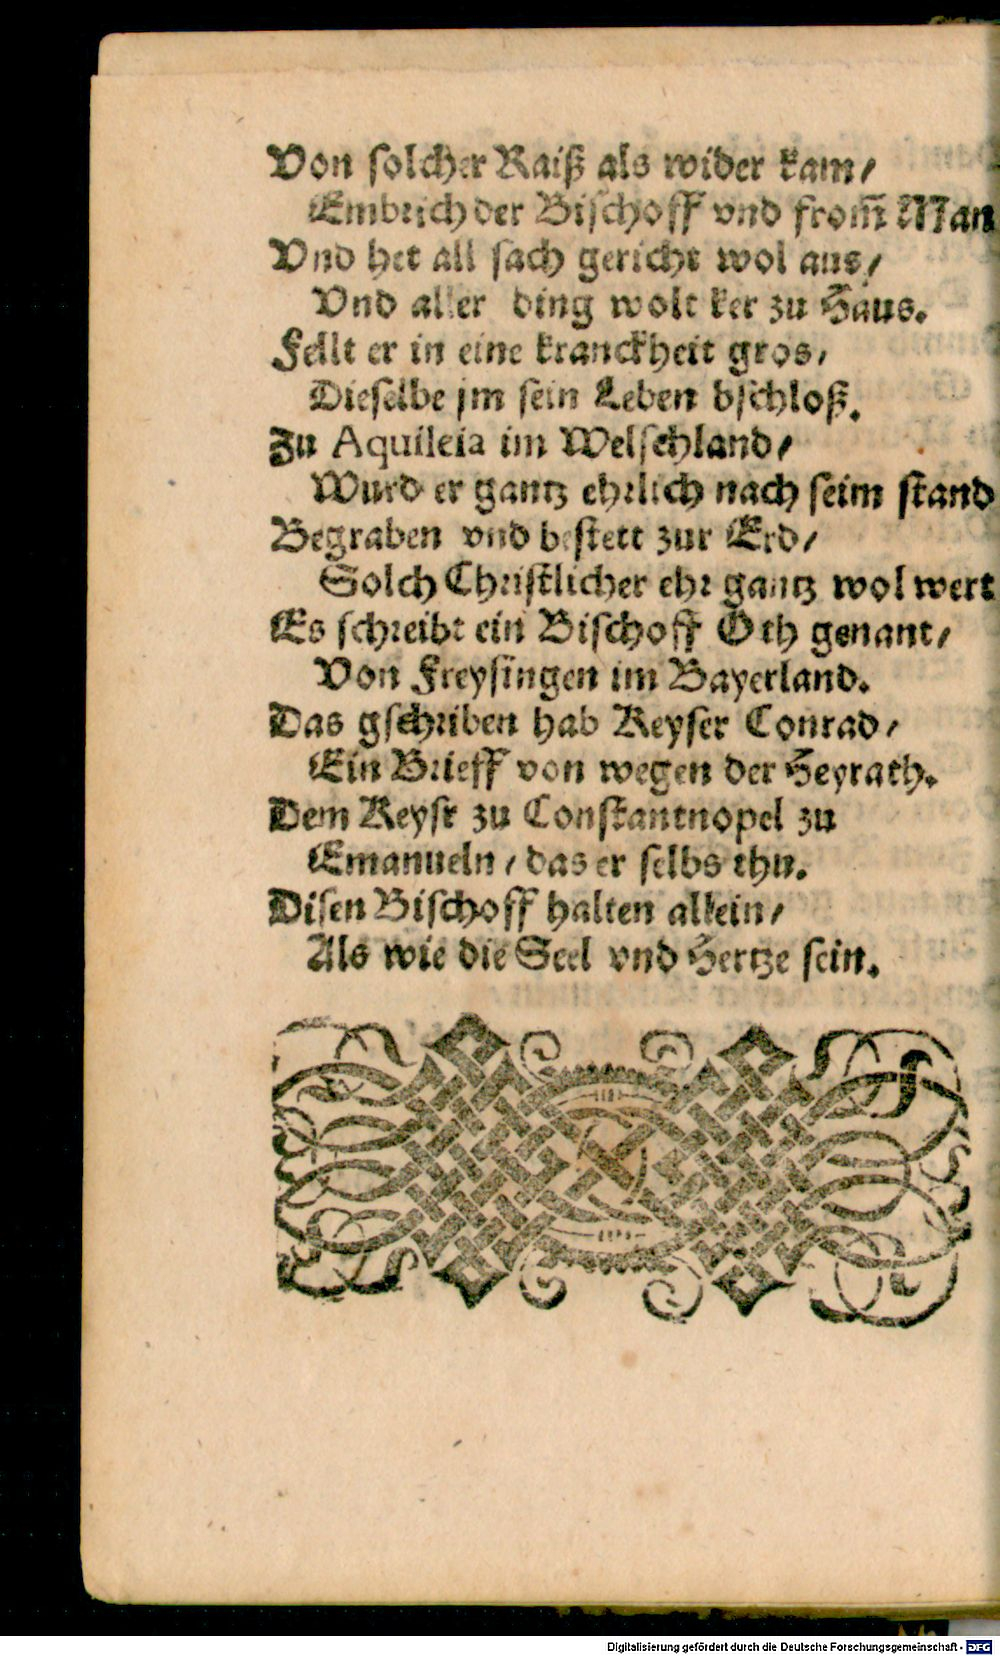 Von solcher Raiß als wider kam/
Embrich der Bischoff vnd from̃ Man
Vnd het all sach gericht wol aus/
Vnd aller ding wolt ker zu Haus.
Fellt er in eine kranckheit gros/
Dieselbe jm sein Leben bschloß.
Zu Aquileia im Welschland/
Wurd er gantz ehrlich nach seim stand
Begraben vnd bestett zur Erd/
Solch Christlicher ehr gantz wol wert
Es schreibt ein Bischoff Oth genant/
Von Freysingen im Bayerland.
Das gschriben hab Keyser Conrad/
Ein Brieff von wegen der Heyrath.
Dem Keysr zu Constantnopel zu
Emanueln/ das er selbs thu.
Disen Bischoff halten allein/
Als wie die Seel vnd Hertze sein.
Digitalisierung gefördert durch die Deutsche Forschungsgemeinschaft - DFG